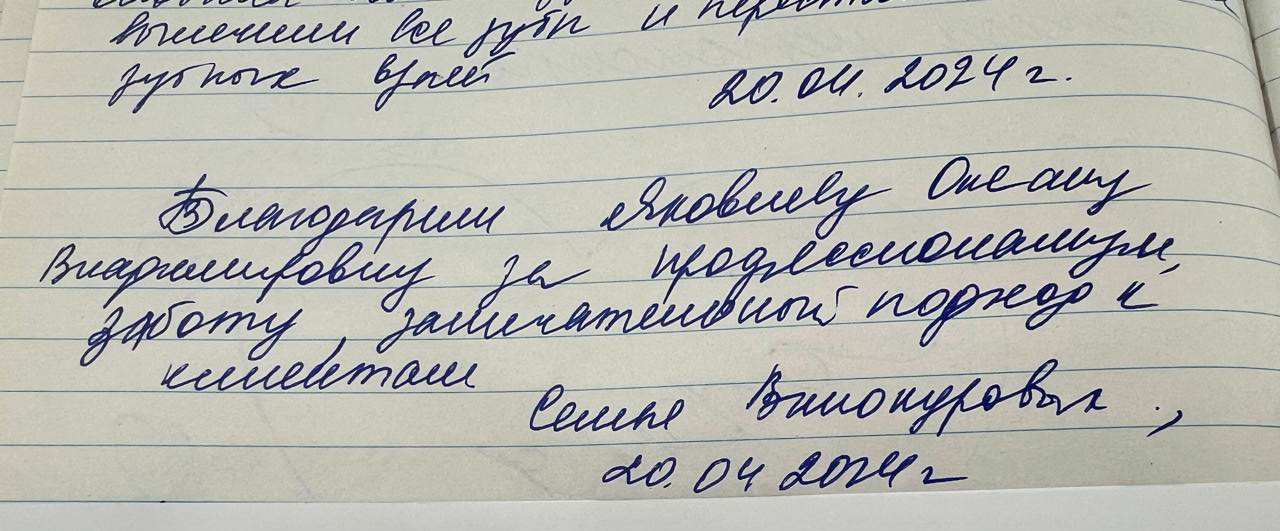 вылечили все зубы и
зубных врачей
20.04.2024 г.
Благодарим Яковлеву Оксану
Владимировну за профессионализм,
заботу, замечательный подход к
клиентам
Семья Винокуровых.,
20.04 2024 г